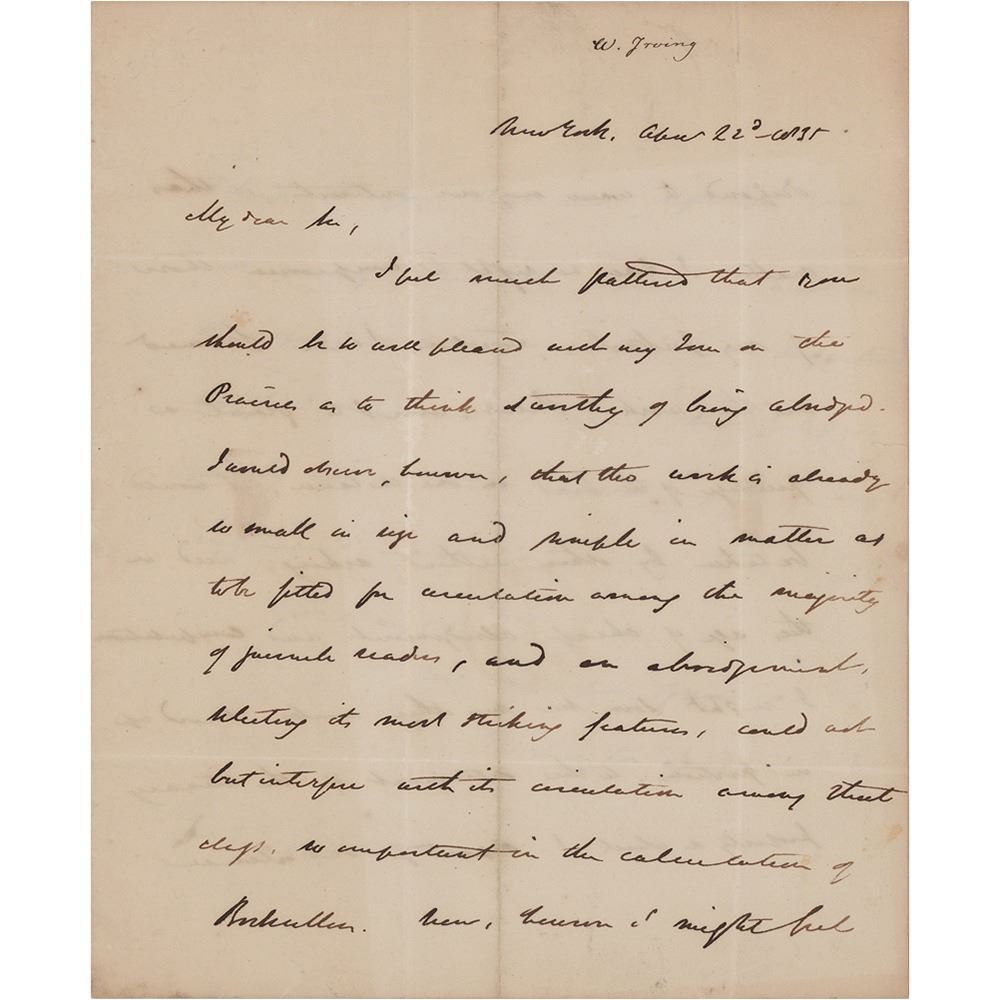 W. Irving
New York, April 22d 1835.
My dear Sir,
I feel much flattered that you
should be so well pleased with my Tour on the
Prairies as to think it worthy of being abridged.
I would observe, however, that the work is already
so small in size and simple in matter as
to be fitted for circulation among the majority
of juvenile readers, and an abridgment,
selecting its most striking features, could not
but interfere with its circulation among that
class, so important in the calculation of
Booksellers. Now, however I might feel